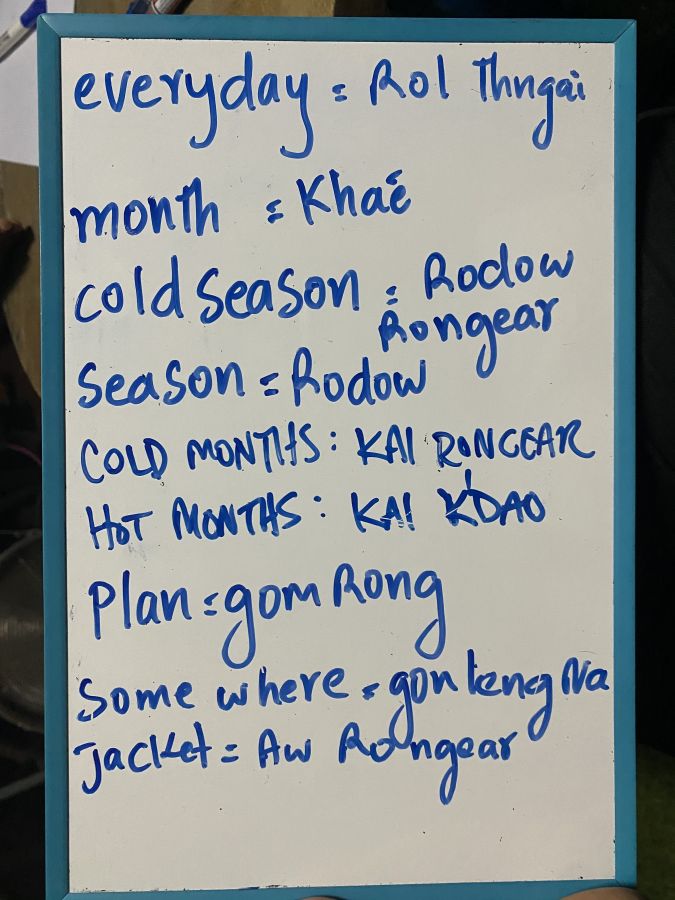 everyday = Rol Thngai
month = Khaé
cold season = Rodow
Rongear
season = Rodow
COLD MONTHS: KAI RONGEAR
HOT MONTHS: KAI K'DAO
Plan = gom Rong
Some where = gon leng Na
Jacket = Aw Rongear